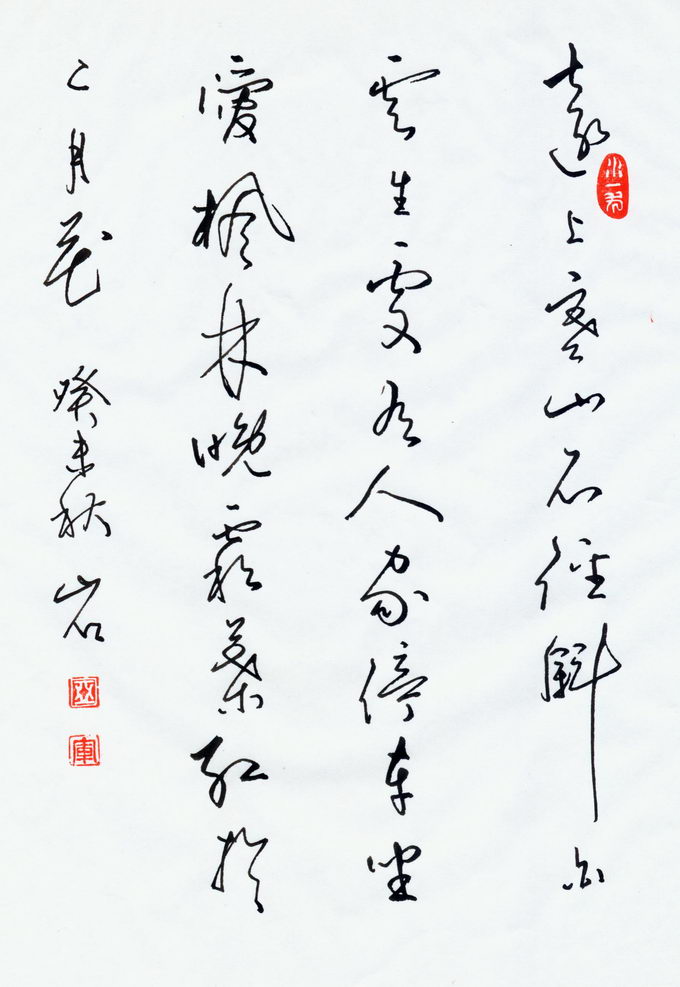 遠上寒山石徑斜白
雲生處有人家停车坐
愛楓林晚霜葉红於
二月花 癸未秋 岩